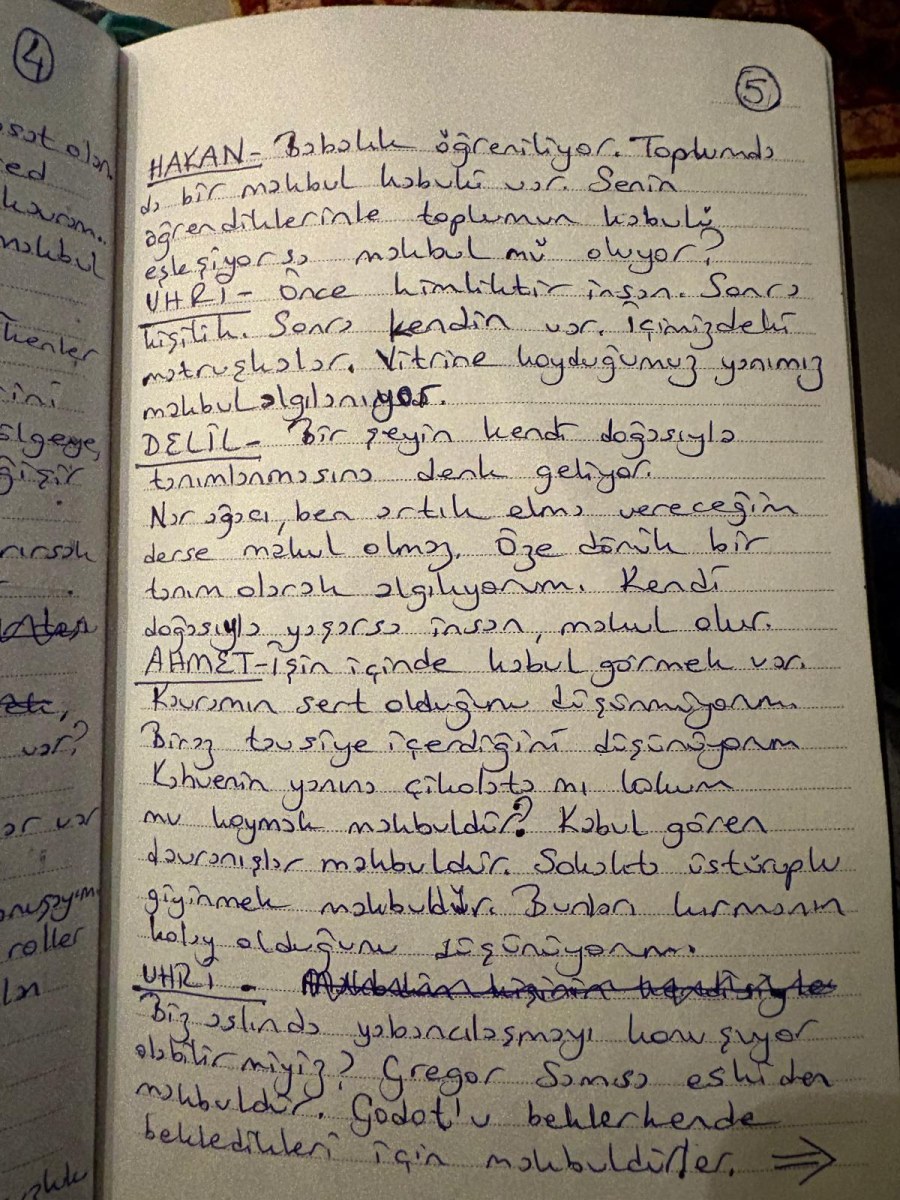 4
sat olan
ed
kavram.
makbul
kenler
ini
silgeye,
ğişir
rırsak
var?
ar var
onuşayım
roller
lan
5
HAKAN - Babalık öğreniliyor. Toplumda
da bir makbul kabulü var. Senin
öğrendiklerinle toplumun kabulü
eşleşiyorsa makbul mü oluyor?
UHRİ - Önce kimliktir insan. Sonra
kişilik. Sonra kendin var. İçimizdeki
matruşkalar. Vitrine koyduğumuz yanımız
makbul algılanıyor.
DELİL - Bir şeyin kendi doğasıyla
tanımlanmasına denk geliyor.
Nar ağacı, ben artık elma vereceğim
derse makul olmaz. Öze dönük bir
tanım olarak algılıyorum. Kendi
doğasıyla yaşarsa insan, makul olur.
AHMET - İşin içinde kabul görmek var.
Kavramın sert olduğunu düşünmüyorum.
Biraz tavsiye içerdiğini düşünüyorum
Kahvenin yanına çikolata mı lokum
mu koymak makbuldür? Kabul gören
davranışlar makbuldür. Sokakta üstüruplu
giyinmek makbuldür. Bunları kırmanın
kolay olduğunu düşünüyorum.
UHRİ -
Biz aslında yabancılaşmayı konuşuyor
olabilir miyiz? Gregor Samsa eskiden
makbuldür. Godot'u beklerkende
bekledikleri için makbuldürler. ⇒